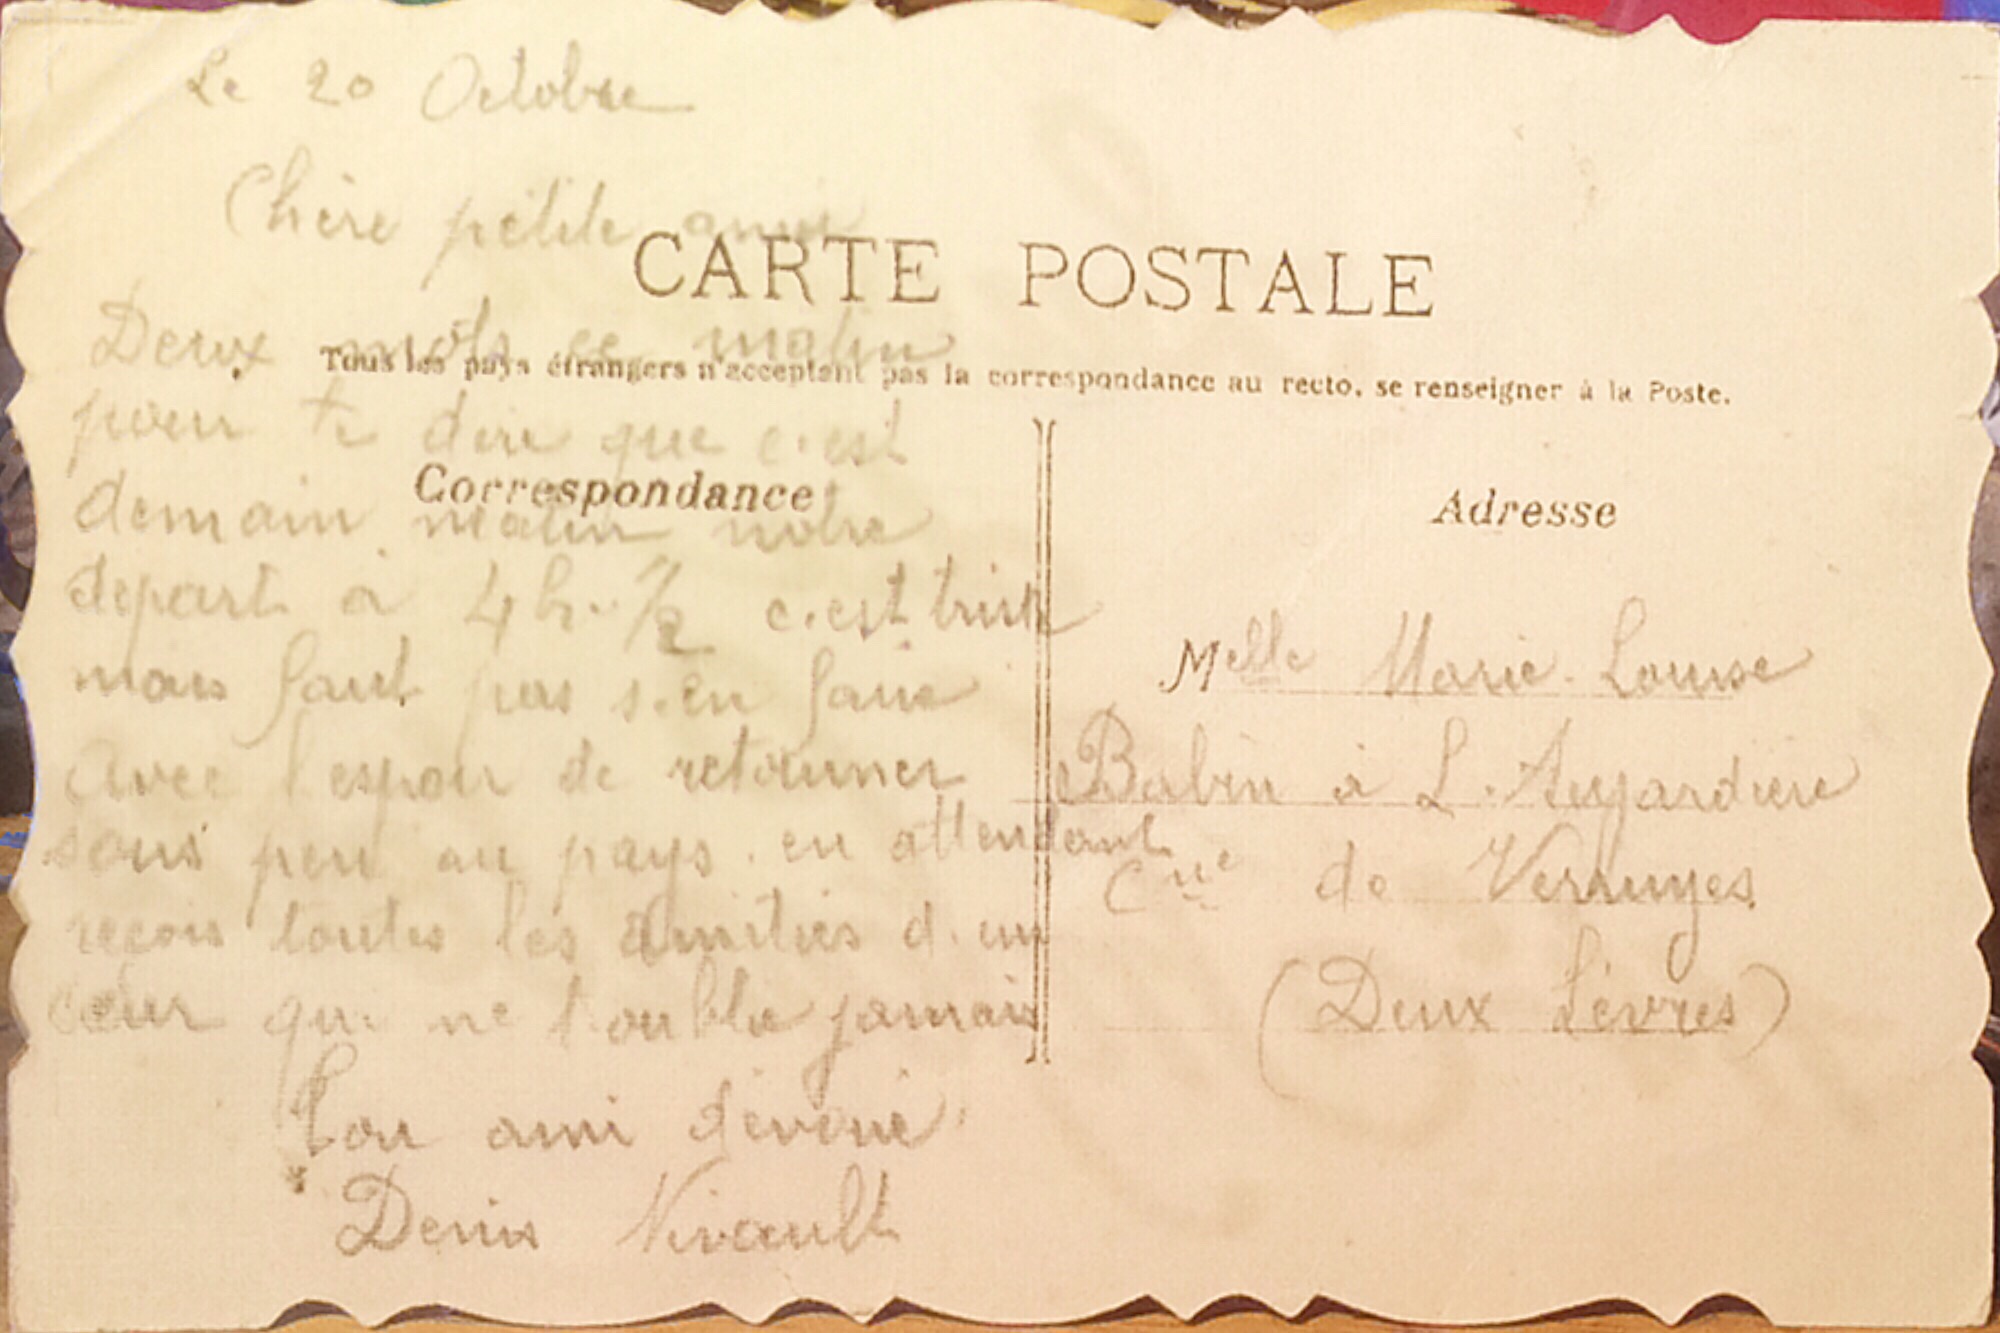 Le 20 Octobre
Chère petite amie
CARTE POSTALE
Deux mots ce matin
Tous les pays étrangers n'acceptant pas la correspondance au recto, se renseigner à la Poste.
pour te dire que c.est
Correspondance
demain matin notre
depart à 4 h. 1/2 c.est triste
mais faut pas s.en faire
Avec l'espoir de retourner
sous peu au pays. en attendant
reçois toutes les amitiés d.un
cœur qui ne t.oublie jamais
Ton ami dévoué
Denis Nivault
Adresse
Melle Marie-Louise
Babin à L.Aujardière
Cne de Verruyes
(Deux Sèvres)